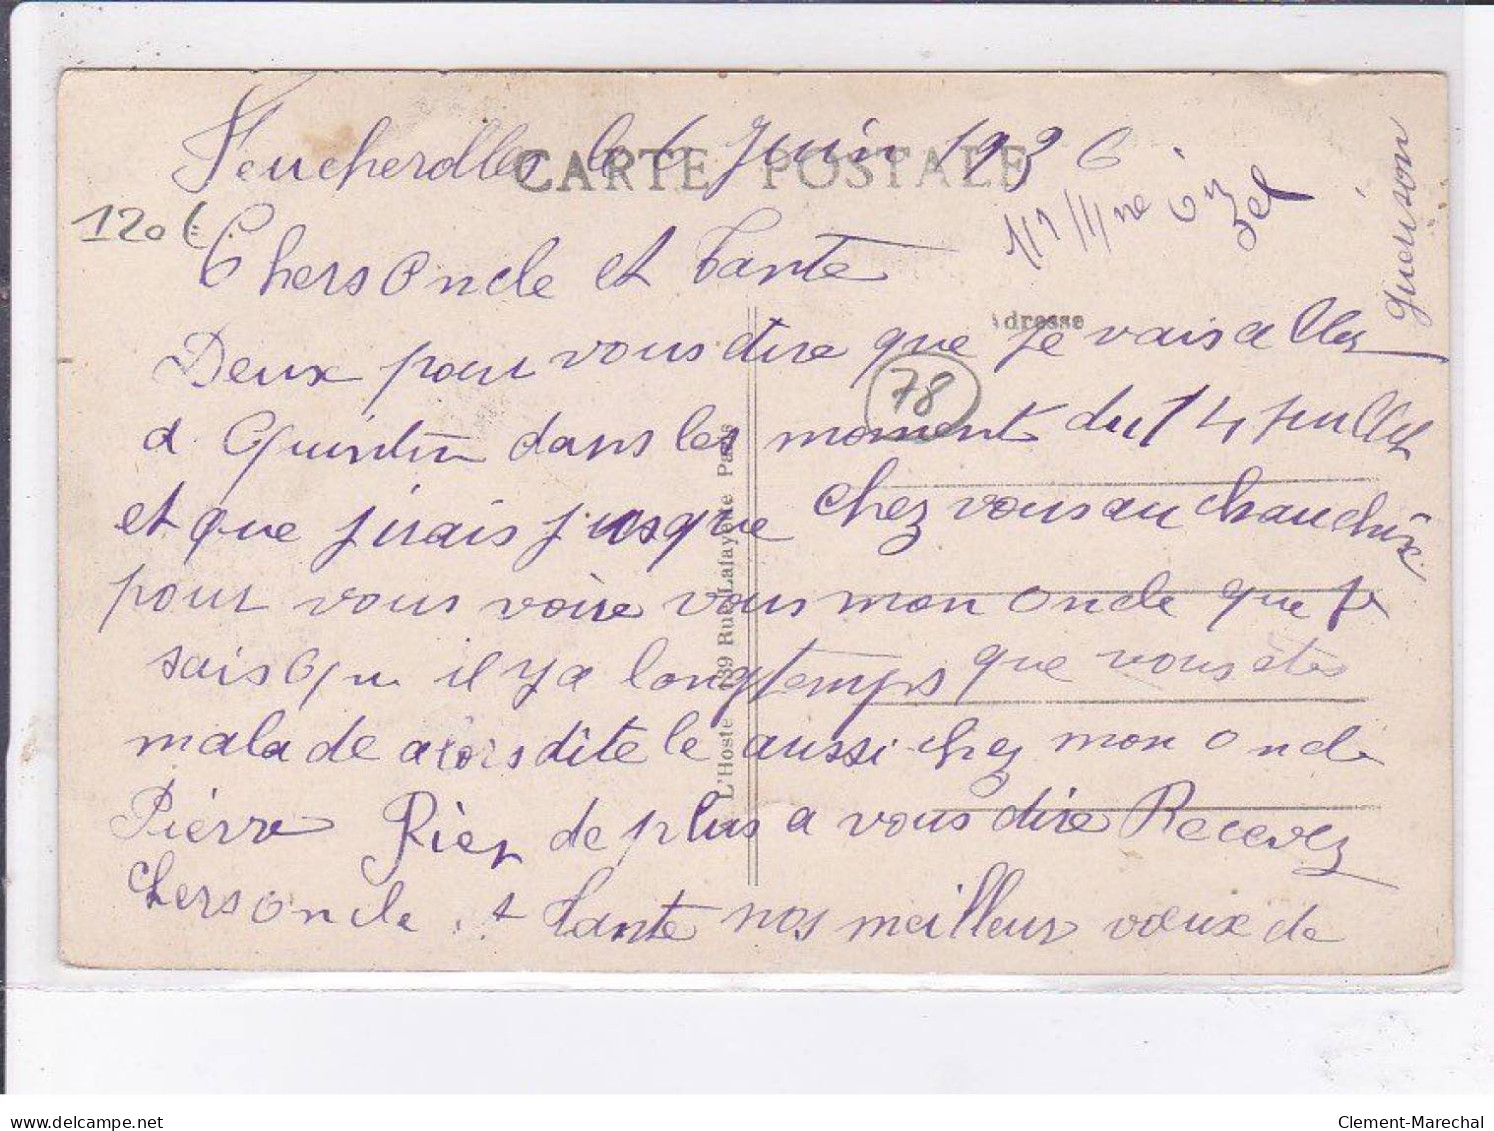 Feucherolles le 6 Juin 1936
CARTE POSTALE
120€
Chers Oncle et Tante
Adresse
Deux pour vous dire que je vais aller
78
a Quintin dans les moment du 14 Juillet
et que jirais jusque chez vous au
pour vous voire vous mon oncle que je
sais Qu il y a longtemps que vous êtes
malade alors dite le aussi chez mon oncle
Pierre Rien de plus a vous dire Recevez
chers oncle et Tante nos meilleur vœux de
guerison
L'Hoste 139 Rue Lafayette Paris
www.delcampe.net
Clement-Marechal